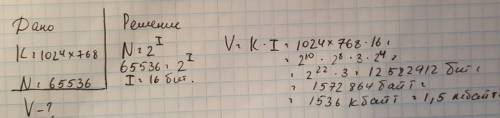 Дано
K = 1024 × 768
N = 65536
V - ?
Решение
N = 2^I
65536 = 2^I
I = 16 бит.
V = K · I = 1024 × 768 · 16 =
= 2^10 · 2^8 · 3 · 2^4 =
= 2^22 · 3 = 12 582912 бит =
= 1572 864 байт =
= 1536 кбайт = 1,5 мбайт